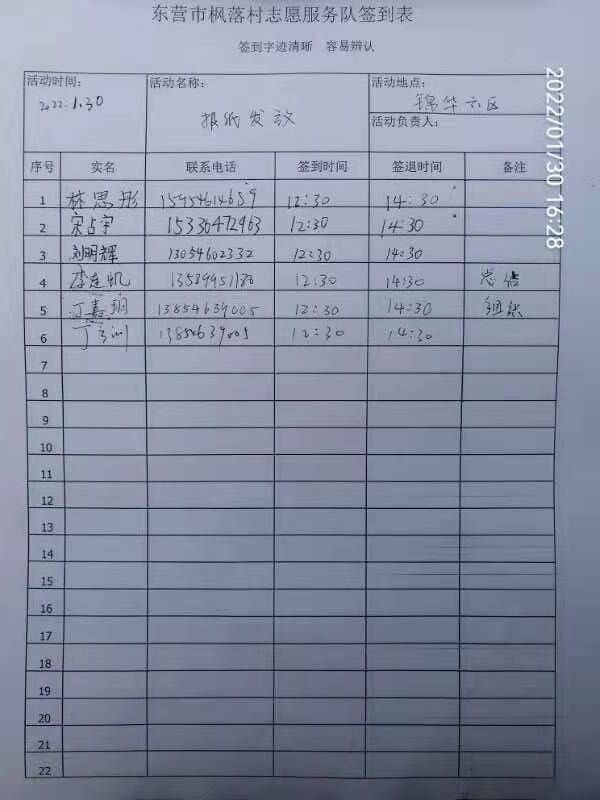 东营市枫落村志愿服务队签到表
签到字迹清晰 容易辨认
活动时间： 活动名称： 活动地点：
2022.1.30 报纸发放 锦华六区
活动负责人：
序号 实名 联系电话 签到时间 签退时间 备注
1 林思彤 15954614659 12:30 14:30
2 宋占宇 15336472963 12:30 14:30
3 刘明辉 13054602332 12:30 14:30
4 李建凯 12:30 14:30 总结
5 丁嘉玥 13854639005 12:30 14:30 组织
6 丁 13854639005 12:30 14:30
7
8
9
10
11
12
13
14
15
16
17
18
19
20
21
22
2022/01/30 16:28